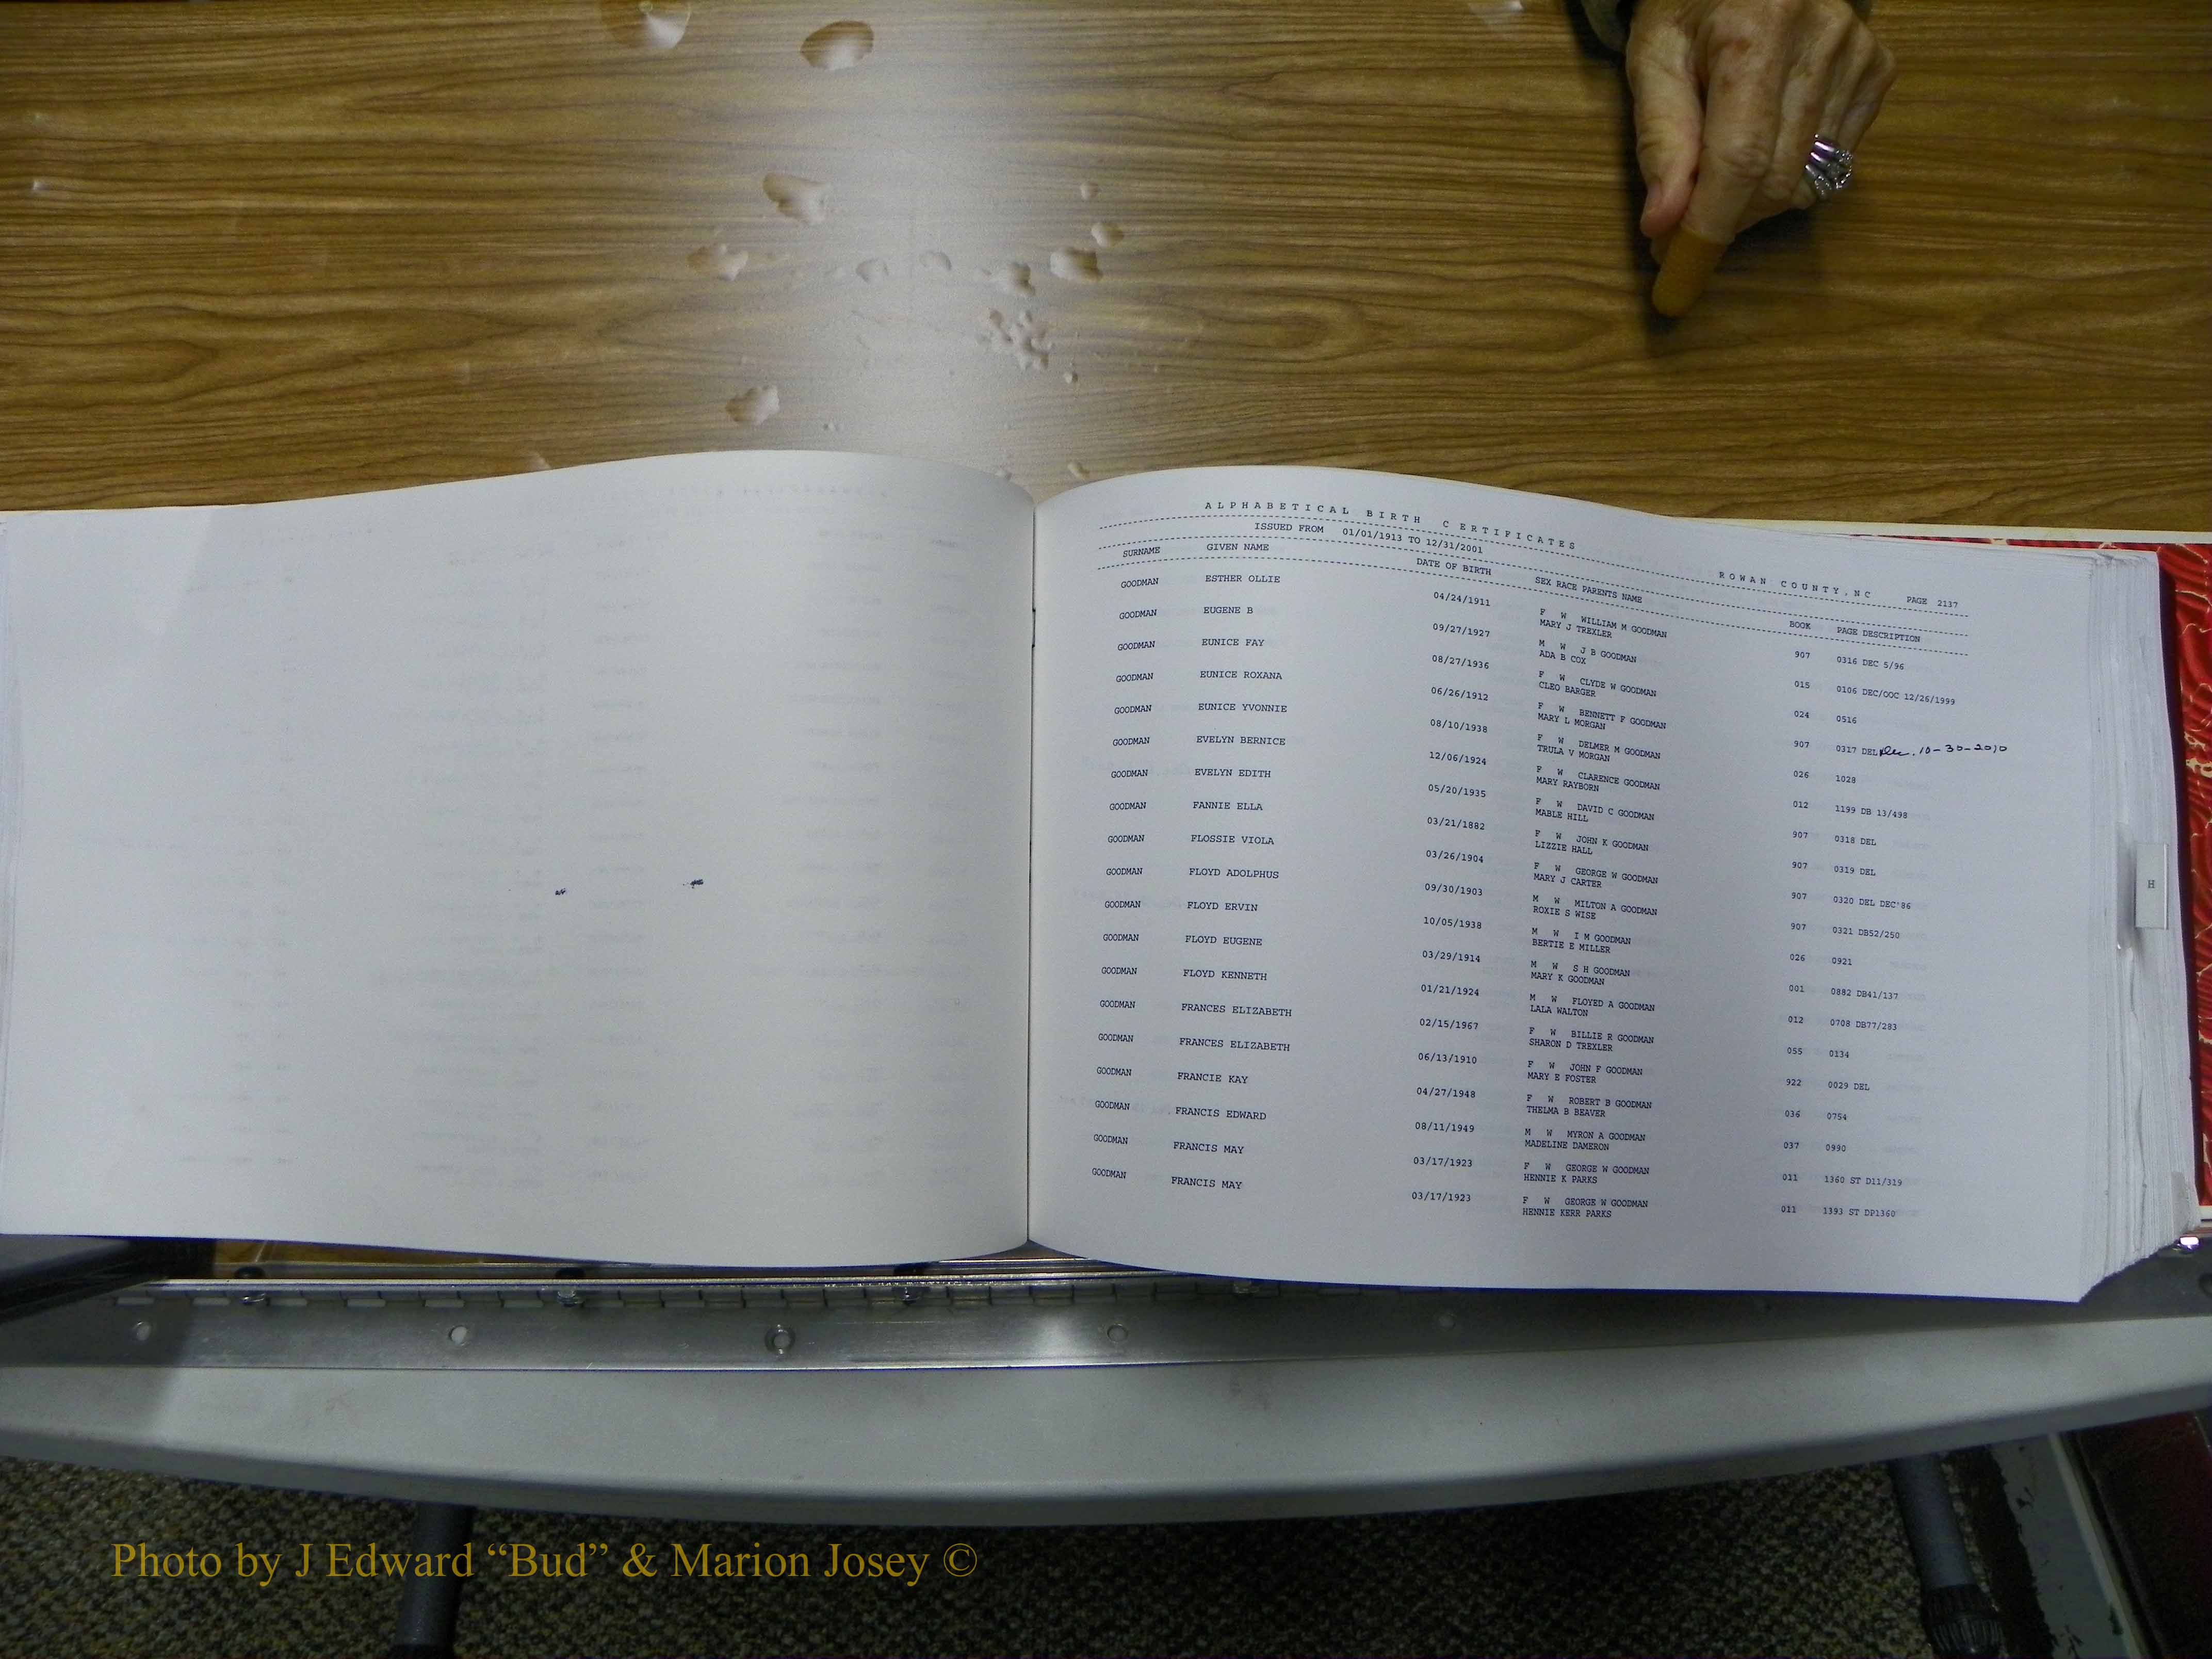 ALPHABETICAL BIRTH CERTIFICATES ROWAN COUNTY, NC PAGE 2137
ISSUED FROM 01/01/1913 TO 12/31/2001
SURNAME GIVEN NAME DATE OF BIRTH SEX RACE PARENTS NAME BOOK PAGE DESCRIPTION
GOODMAN ESTHER OLLIE 04/24/1911 F W WILLIAM M GOODMAN 907 0316 DEC 5/96
MARY J TREXLER
GOODMAN EUGENE B 09/27/1927 M W J B GOODMAN 015 0106 DEC/OOC 12/26/1999
ADA B COX
GOODMAN EUNICE FAY 08/27/1936 F W CLYDE W GOODMAN 024 0516
CLEO BARGER
GOODMAN EUNICE ROXANA 06/26/1912 F W BENNETT F GOODMAN 907 0317 DEL Dec. 10-30-2010
MARY L MORGAN
GOODMAN EUNICE YVONNIE 08/10/1938 F W DELMER M GOODMAN 026 1028
TRULA V MORGAN
GOODMAN EVELYN BERNICE 12/06/1924 F W CLARENCE GOODMAN 012 1199 DB 13/498
MARY RAYBORN
GOODMAN EVELYN EDITH 05/20/1935 F W DAVID C GOODMAN 907 0318 DEL
MABLE HILL
GOODMAN FANNIE ELLA 03/21/1882 F W JOHN K GOODMAN 907 0319 DEL
LIZZIE HALL
GOODMAN FLOSSIE VIOLA 03/26/1904 F W GEORGE W GOODMAN 907 0320 DEL DEC'86
MARY J CARTER
GOODMAN FLOYD ADOLPHUS 09/30/1903 M W MILTON A GOODMAN 907 0321 DB52/250
ROXIE S WISE
GOODMAN FLOYD ERVIN 10/05/1938 M W I M GOODMAN 026 0921
BERTIE E MILLER
GOODMAN FLOYD EUGENE 03/29/1914 M W S H GOODMAN 001 0882 DB41/137
MARY K GOODMAN
GOODMAN FLOYD KENNETH 01/21/1924 M W FLOYED A GOODMAN 012 0708 DB77/283
LALA WALTON
GOODMAN FRANCES ELIZABETH 02/15/1967 F W BILLIE R GOODMAN 055 0134
SHARON D TREXLER
GOODMAN FRANCES ELIZABETH 06/13/1910 F W JOHN F GOODMAN 922 0029 DEL
MARY E FOSTER
GOODMAN FRANCIE KAY 04/27/1948 F W ROBERT B GOODMAN 036 0754
THELMA B BEAVER
GOODMAN FRANCIS EDWARD 08/11/1949 M W MYRON A GOODMAN 037 0990
MADELINE DAMERON
GOODMAN FRANCIS MAY 03/17/1923 F W GEORGE W GOODMAN 011 1360 ST D11/319
HENNIE K PARKS
GOODMAN FRANCIS MAY 03/17/1923 F W GEORGE W GOODMAN 011 1393 ST DP1360
HENNIE KERR PARKS
H
Photo by J Edward “Bud” & Marion Josey ©